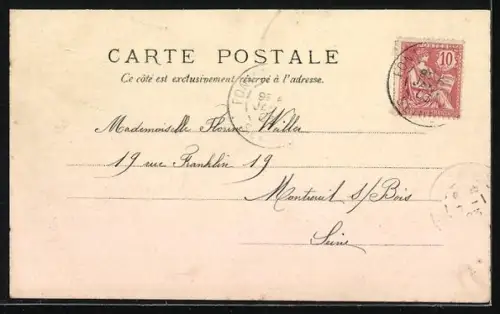 CARTE POSTALE
Ce côté est exclusivement réservé à l'adresse.
10
Mademoiselle Florine Waller
19 rue Franklin 19
Montreuil s/Bois
Seine